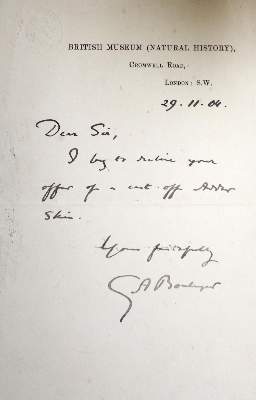 BRITISH MUSEUM (NATURAL HISTORY),
CROMWELL ROAD,
LONDON: S.W.
29.11.04.
Dear Sir,
I beg to decline your
offer of a cast off Adder
Skin.
Yours faithfully
G A Boulenger